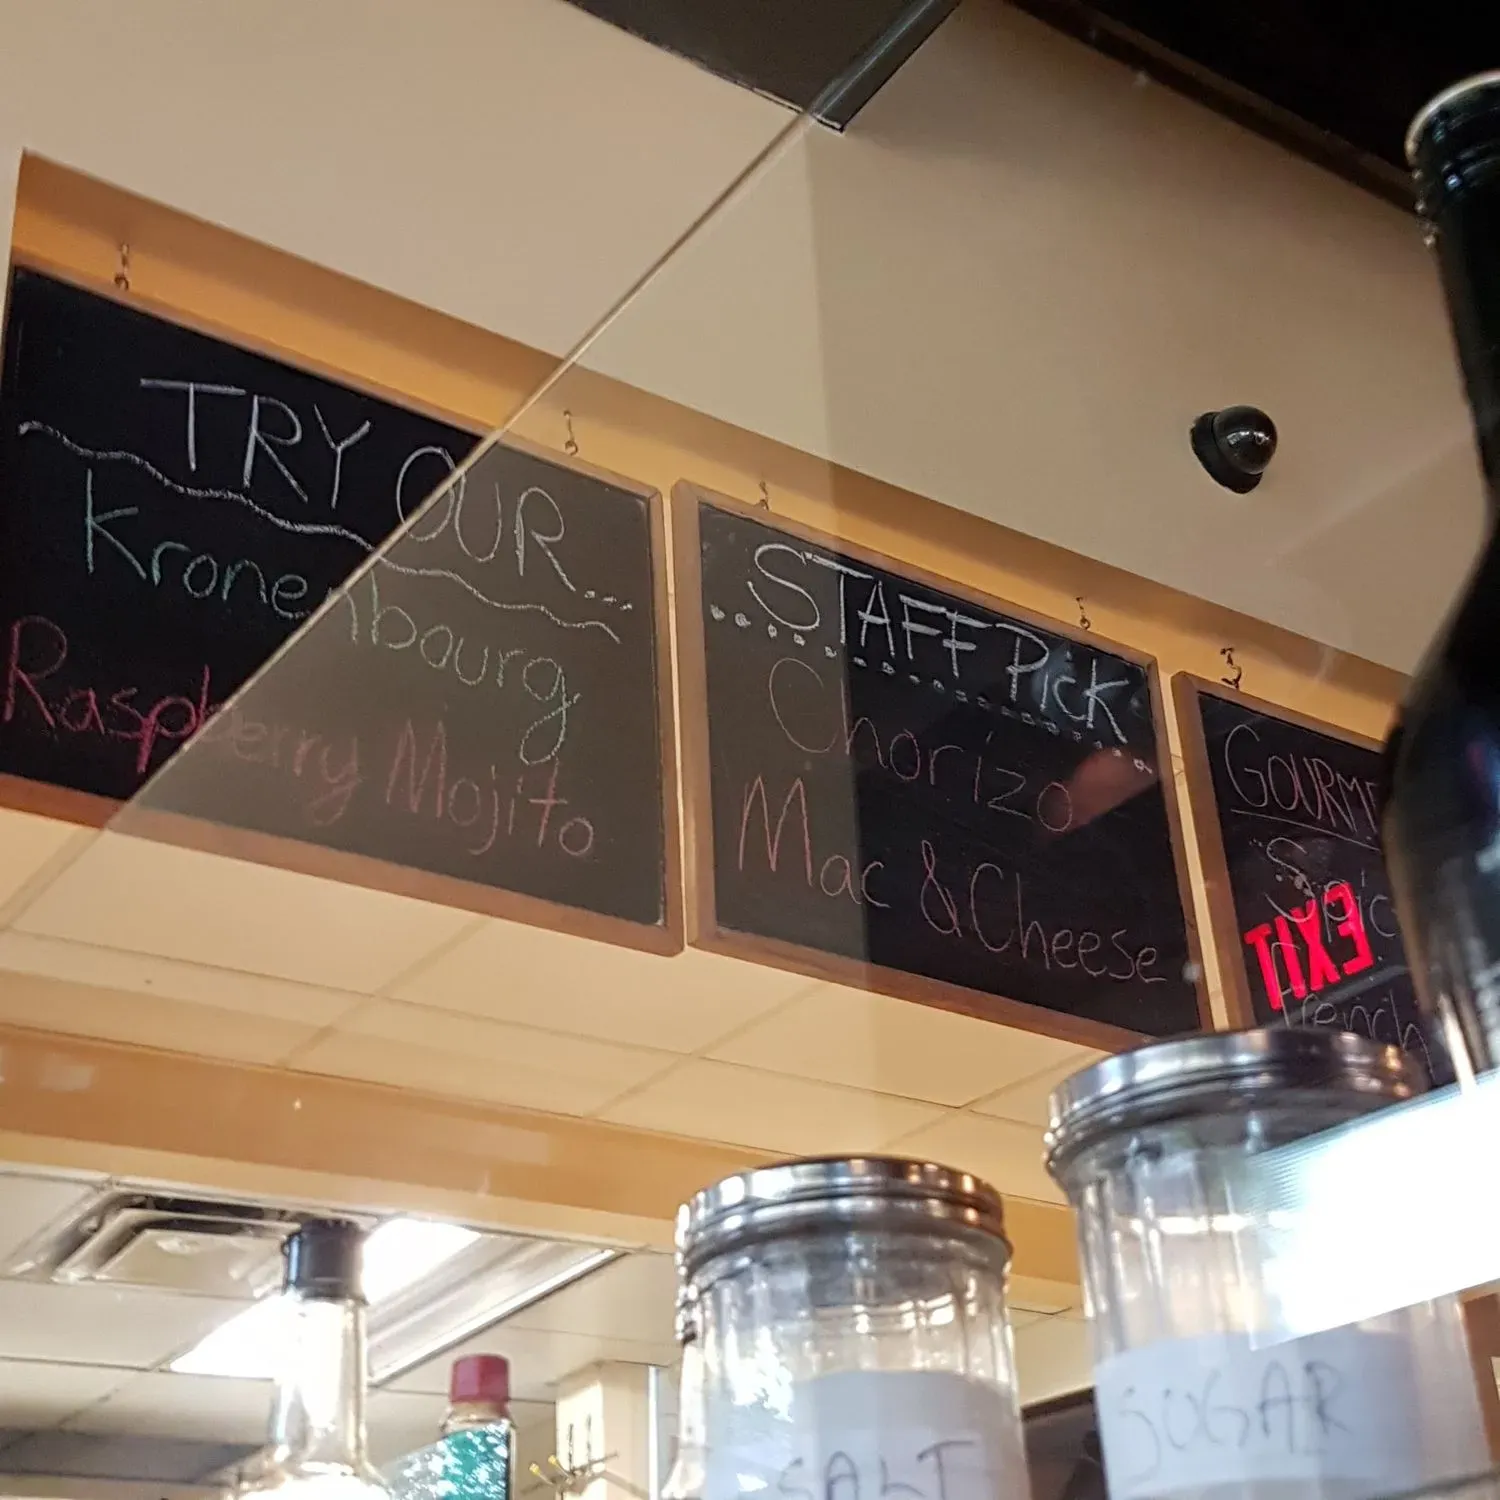 TRY OUR...
Kronenbourg
Raspberry Mojito
STAFF Pick
Chorizo
Mac & Cheese
EXIT
French
SALT
SUGAR